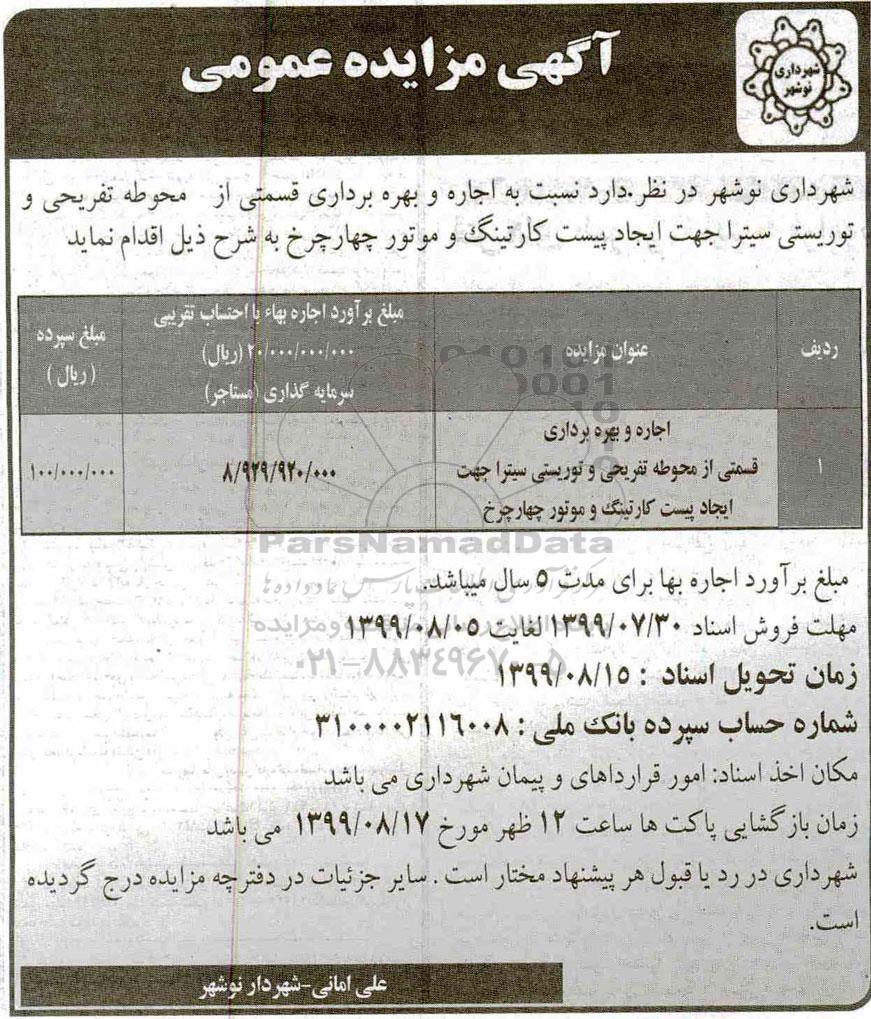 آگهی مزایده عمومی
شهرداری
نوشهر
شهرداری نوشهر در نظر.دارد نسبت به اجاره و بهره برداری قسمتی از محوطه تفریحی و
توریستی سیترا جهت ایجاد پیست کارتینگ و موتور چهارچرخ به شرح ذیل اقدام نماید
ردیف
عنوان مزایده
مبلغ برآورد اجاره بهاء با احتساب تقریبی
۲۰/۰۰۰/۰۰۰/۰۰۰ (ریال)
سرمایه گذاری (مستاجر)
مبلغ سپرده
(ریال)
۱
اجاره و بهره برداری
قسمتی از محوطه تفریحی و توریستی سیترا جهت
ایجاد پیست کارتینگ و موتور چهارچرخ
۸/۹۲۹/۹۲۰/۰۰۰
۱۰۰/۰۰۰/۰۰۰
ParsNamadData
مبلغ برآورد اجاره بها برای مدت ۵ سال میباشد.
مهلت فروش اسناد ۱۳۹۹/۰۷/۳۰ لغایت ۱۳۹۹/۰۸/۰۵
۰۲۱-۸۸۳۴۹۶۷۰-۵
زمان تحویل اسناد : ۱۳۹۹/۰۸/۱۵
شماره حساب سپرده بانک ملی : ۳۱۰۰۰۰۲۱۱۶۰۰۸
مکان اخذ اسناد: امور قراردادهای و پیمان شهرداری می باشد
زمان بازگشایی پاکت ها ساعت ۱۲ ظهر مورخ ۱۳۹۹/۰۸/۱۷ می باشد
شهرداری در رد یا قبول هر پیشنهاد مختار است . سایر جزئیات در دفترچه مزایده درج گردیده
است.
علی امانی-شهردار نوشهر